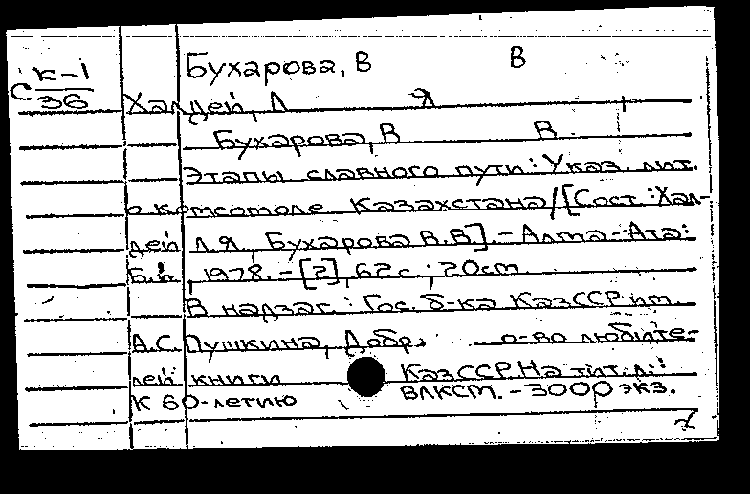 Бухарова, В В
С К-1
36
Халдей, Л Я
Бухарова, В В.
Этапы славного пути: Указ. лит.
о комсомоле Казахстана/[Сост.: Хал-
дей Л.Я., Бухарова В.В]. - Алма-Ата:
Б.и., 1978. - [2], 62 с ; 20 см
В надзаг.: Гос. б-ка КазССР им.
А.С. Пушкина, Добр. о-во любите-
лей книги КазССР. На тит. л.:
К 60-летию ВЛКСМ. - 3000 экз.